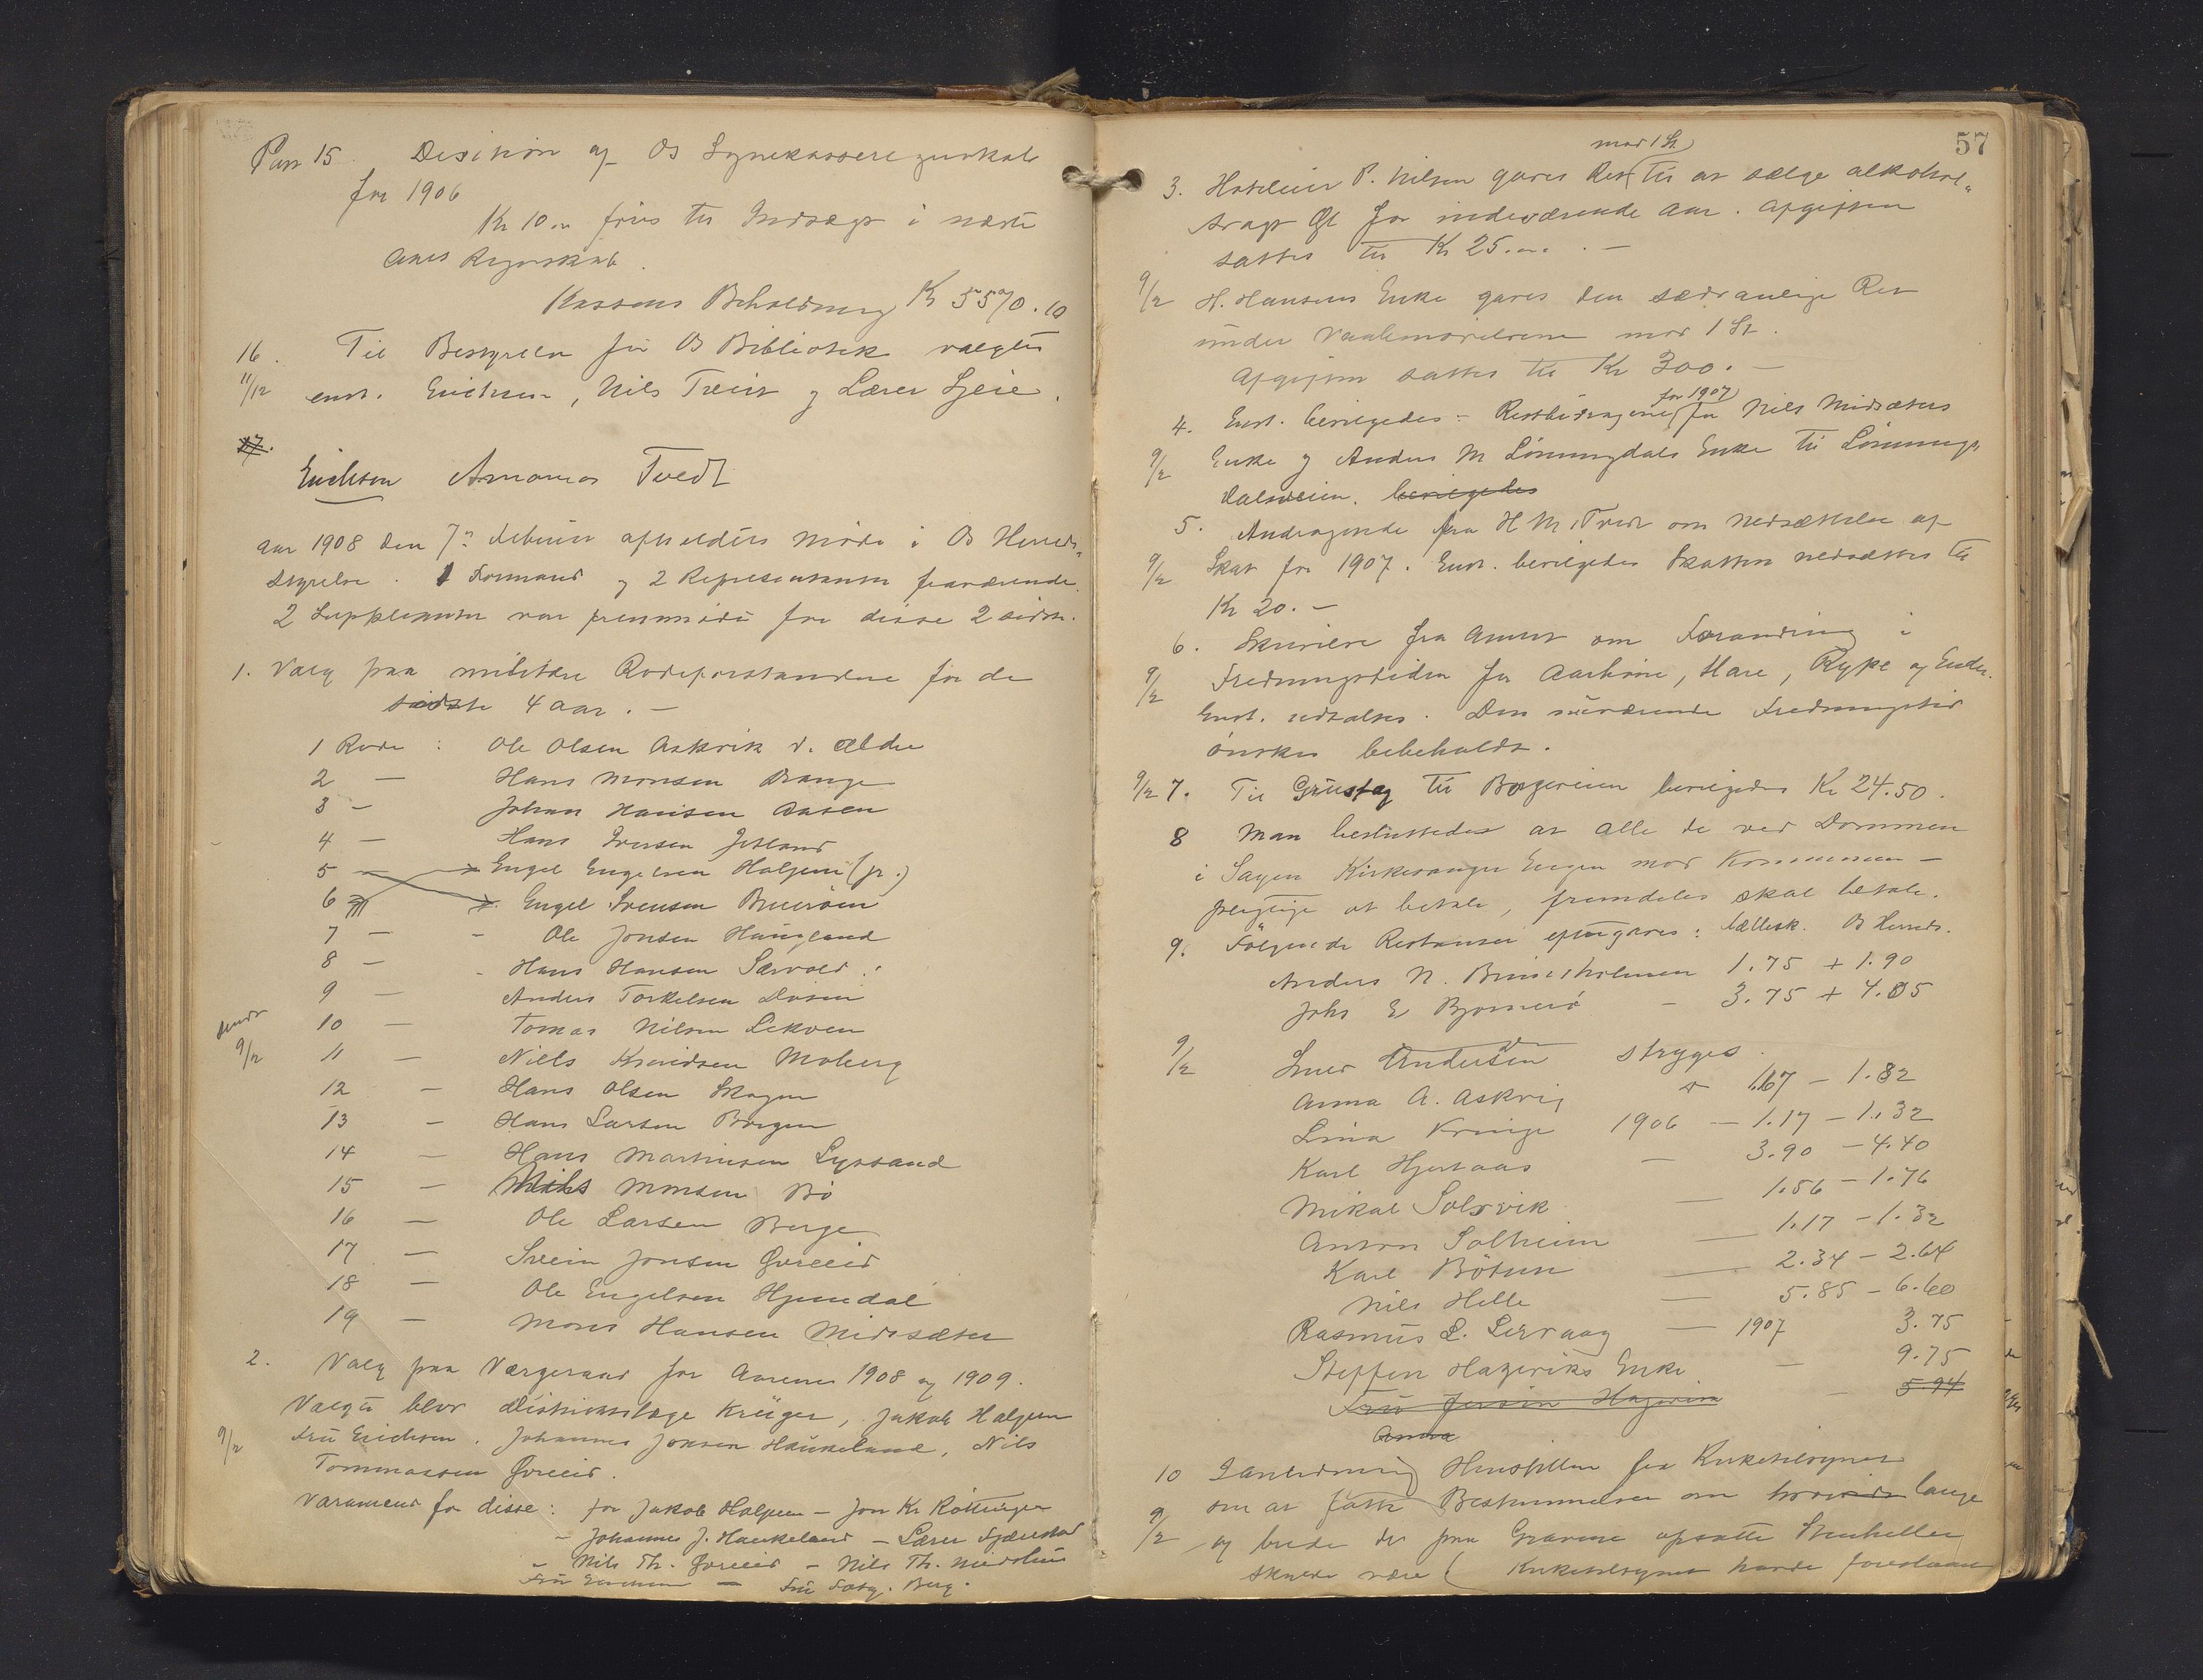 Pass 15. Desision af Os Lynekasseregnskab
for 1906
Kr 10.00 føres til Indtægt i næste
Aars Regnskab.
Kassens Beholdning Kr 5570.10
16. Til Bestyrelse for Os Bibliotek valgtes
11/12 enst. Erichsen, Nils Tveit og Lærer Gjeie.
17.
Erichsen Amanias Tvedt
Aar 1908 den 7de Februar afholdtes Møde i Os Herreds-
styrelse. 1 Formand og 2 Repræsentanter fraværende.
2 Supleanter var fremmødt for disse 2 sidste.
1. Valg paa militære Rodeforstandere for de
sidste 4 aar. —
1 Rode : Ole Olsen Askvik d. ældre
2 — Hans Monsen Drange
3 — Johan Hansen Aasen
4 — Hans Iversen Jetland
5 — Engel Engelsen Haljem (jr.)
6 Engel Svensen Bruarøen
7 — - Ole Jonsen Haugland
8 — - Hans Hansen Særvold
9 — Anders Torkelsen Døsen
sendt 10 — Tomas Nilsen Lekven
9/2 11 — Niels Knudsen Moberg
12 — Hans Olsen Skogen
13 — Hans Larsen Borgen
14 — Hans Martinsen Lyssand
15 — Monsen Bø
16 — Ole Larsen Berge
17 — Svein Jonsen Øvreeid
18 — Ole Engelsen Hjemdal
19 — Mons Hansen Midtsæter
2. Valg paa Værgeraad for Aarene 1908 og 1909.
Valgte blev Distriktslæge Krüger, Jakob Haljem
9/2 Fru Erichsen. Johannes Jonsen Haukeland, Nils
Tommassen Øvreeid.
Varamænd for disse: for Jakob Haljem — Jon Kr Røttingen
- Johannes J. Haukeland — Lærer Gjærstad
- Nils Th. Øvreeid — Nils Th. Midthus
Fru Erichsen — Fru Berg.
57
mod 1 St
3. Hoteleier P. Nilsen gaves Ret til at sælge alkohol-
svagt Øl for indeværende Aar. Afgiften
sattes til Kr 25.00. —
9/2 H. Hansens Enke gaves den sædvanlige Ret
under Vaabenøvelserne mod 1 St.
Afgiften sattes til Kr 300. —
for 1907
4. Enst. bevilgedes Restbidragene for Nils Midsæters
9/2 Enke og Anders M Lønningdals Enke til Lønnings-
dalsveien. bevilgedes
5. Andragende fra H M Tvedt om Nedsættelse af
9/2 Skat for 1907. Enst. bevilgedes Skatten nedsættes til
Kr 20. —
6. Skrivelse fra Amtet om Forandring i
9/2 Fredningstiden for Aarhøne, Hare, Rype og Ender.
Enst. udtaltes. Den nuværende Fredningstid
ønskes bebeholdt.
9/2 7. Til Grustag til Borgeveien bevilgedes Kr 24.50.
8 Man besluttedes at alle de ved Dommen
i Sagen Kirkevangen Engen mod Kommunen —
pligtige at betale, fremdeles skal betale.
9. Følgende Restanser eftergaves: Fællesk. Os Herreds.
Anders N. Bruseholmen 1.75 + 1.90
Johs E Bjørnerø — 3.75 + 4.05
9/2 Andersen stryges.
Anna A. Askvig 1.67 — 1.82
Lina Kringe 1906 — 1.17 — 1.32
Karl Hjertaas — 3.90 — 4.40
Mikal Solsvik — 1.56 — 1.76
Anton Solheim — 1.17 — 1.32
Karl Bøtun — 2.34 — 2.64
Nils Helle — 5.85 — 6.60
Rasmus L. Lervaag — 1907 3.75
Steffen Hageviks Enke — 9.75
Hagevik — 5.94
Anna
10 I Anledning Henstillen fra Kirketilsynet
om at fatte Bestemmelser om hvorvidt lange
9/2 og brede de paa Gravene opsatte Stenheller
skulde være ( Kirketilsynet havde foreslaaet